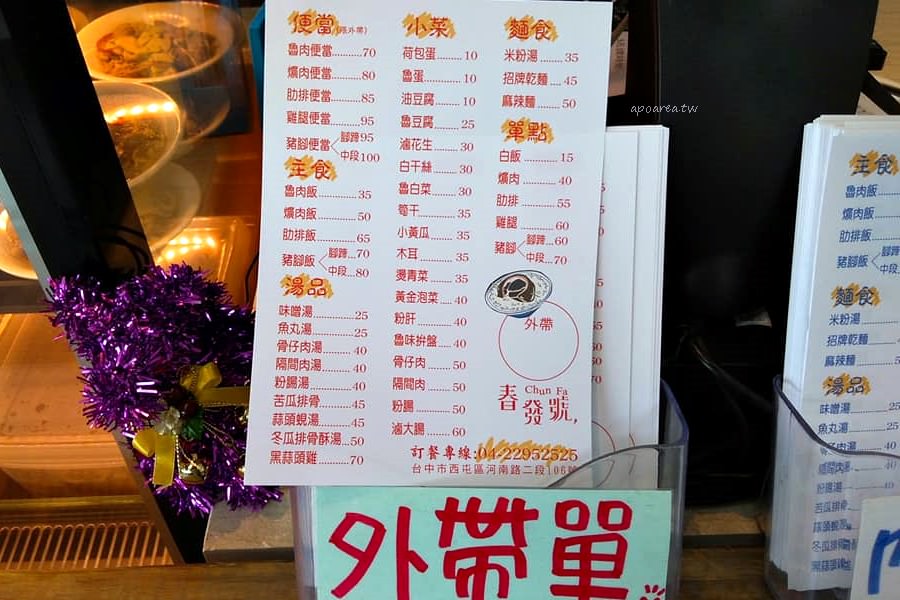 便當(限外帶)
魯肉便當 70
爌肉便當 80
肋排便當 85
雞腿便當 95
豬腳便當 腳蹄95
中段100
主食
魯肉飯 35
爌肉飯 50
肋排飯 65
豬腳飯 腳蹄 70
中段 80
湯品
味噌湯 25
魚丸湯 25
骨仔肉湯 40
隔間肉湯 40
粉腸湯 40
苦瓜排骨 45
蒜頭蜆湯 45
冬瓜排骨酥湯 50
黑蒜頭雞 70
小菜
荷包蛋 10
魯蛋 10
油豆腐 10
魯豆腐 25
滷花生 30
白干絲 30
魯白菜 30
筍干 35
小黃瓜 35
木耳 35
燙青菜 35
黃金泡菜 40
粉肝 40
魯味拚盤 40
骨仔肉 50
隔間肉 50
粉腸 50
滷大腸 60
麵食
米粉湯 35
招牌乾麵 45
麻辣麵 50
單點
白飯 15
爌肉 40
肋排 55
雞腿 60
豬腳 腳蹄 60
中段 70
外帶
春發號,
Chun Fa
訂餐專線:04-22952525
台中市西屯區河南路二段106號
外帶單
apoarea.tw
主食
魯肉飯
爌肉飯
肋排飯
豬腳飯 腳蹄
中段
麵食
米粉湯
招牌乾麵 4
麻辣麵 5
湯品
味噌湯 25
魚丸湯 25
骨仔肉湯 40
隔間肉湯 40
粉腸湯 40
苦瓜排骨
蒜頭蜆湯
冬瓜排骨
黑蒜頭雞